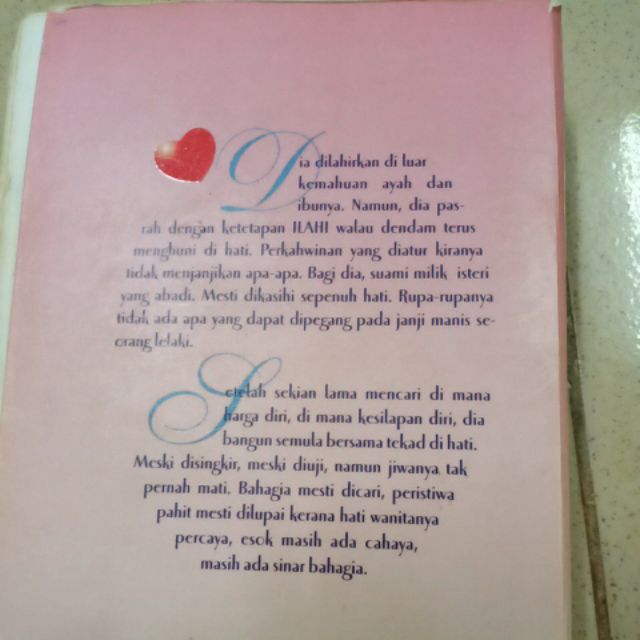 Dia dilahirkan di luar
kemahuan ayah dan
ibunya. Namun, dia pas-
rah dengan ketetapan ILAHI walau dendam terus
menghuni di hati. Perkahwinan yang diatur kiranya
tidak menjanjikan apa-apa. Bagi dia, suami milik isteri
yang abadi. Mesti dikasihi sepenuh hati. Rupa-rupanya
tidak ada apa yang dapat dipegang pada janji manis se-
orang lelaki.
Setelah sekian lama mencari di mana
harga diri, di mana kesilapan diri, dia
bangun semula bersama tekad di hati.
Meski disingkir, meski diuji, namun jiwanya tak
pernah mati. Bahagia mesti dicari, peristiwa
pahit mesti dilupai kerana hati wanitanya
percaya, esok masih ada cahaya,
masih ada sinar bahagia.